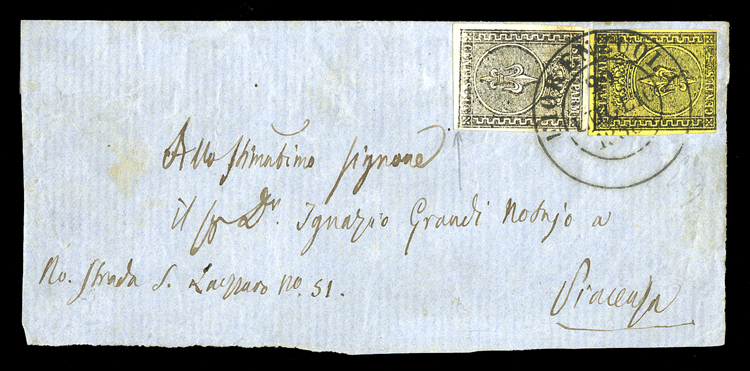 FIORENZUOLA
Allo Stimabimo Signore
il Dr. Ignazio Grandi Notajo a
No. Strada S. Lazzaro No. 51.
Piacenza